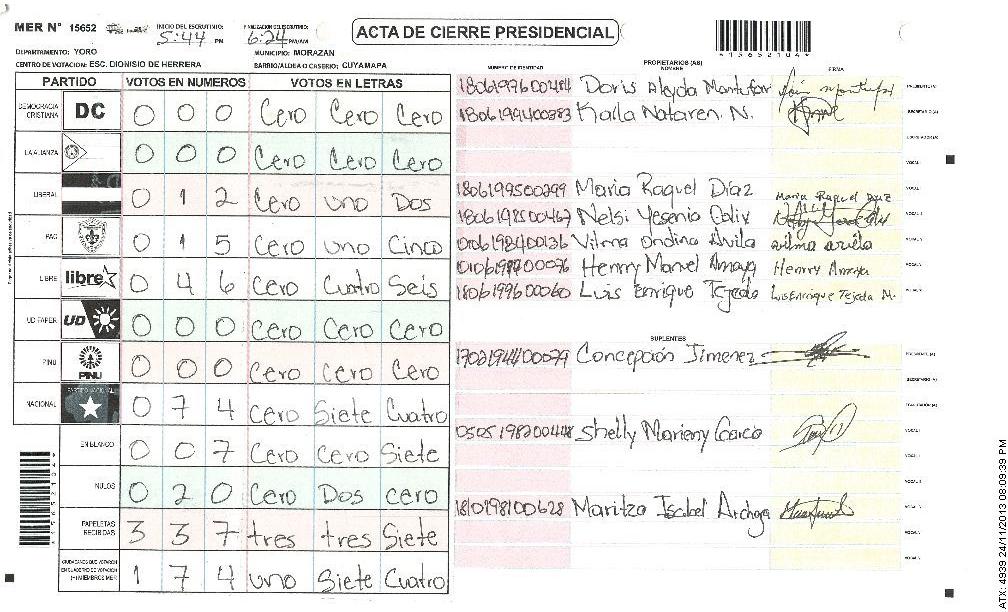 MER Nº 15652 INICIO DEL ESCRUTINIO: 5:44 PM FINALIZACION DEL ESCRUTINIO: 6:24 PM/AM
ACTA DE CIERRE PRESIDENCIAL
DEPARTAMENTO: YORO MUNICIPIO: MORAZAN
CENTRO DE VOTACION: ESC. DIONISIO DE HERRERA BARRIO/ALDEA O CASERIO: CUYAMAPA
PARTIDO VOTOS EN NUMEROS VOTOS EN LETRAS
DEMOCRACIA CRISTIANA DC 0 0 0 Cero Cero Cero
LA ALIANZA 0 0 0 Cero Cero Cero
LIBERAL 0 1 2 Cero uno Dos
PAC 0 1 5 Cero uno Cinco
LIBRE libre 0 4 6 Cero Cuatro Seis
UD FAPER UD 0 0 0 Cero Cero Cero
PINU PINU 0 0 0 Cero Cero Cero
NACIONAL PARTIDO NACIONAL 0 7 4 Cero Siete Cuatro
EN BLANCO 0 0 7 Cero Cero Siete
NULOS 0 2 0 Cero Dos cero
PAPELETAS RECIBIDAS 3 3 7 tres tres Siete
CIUDADANOS QUE VOTARON EN CUADERNO DE VOTACION (+) MIEMBROS MER 1 7 4 uno Siete Cuatro
PROPIETARIOS (AS)
NUMERO DE IDENTIDAD NOMBRE FIRMA
Doris Aleyda PRESIDENTE (A)
Karla Nataren N. SECRETARIO (A)
ESCRUTADOR (A)
VOCAL
1806199500299 Maria Raquel Diaz Maria Raquel Diaz
Nelsi Yesenia
Vilma Ondina Avila vilma avila
Henrry Manuel Amaya Henrry Amaya
1806199600060 Luis Enrique Tejeda Luis Enrique Tejeda M.
SUPLENTES
1702194400079 Concepción Jimenez PRESIDENTE (A)
SECRETARIO (A)
Shelly
1810198100628 Maritza Isabel
ATX: 4939 24/11/2013 08:09:39 PM